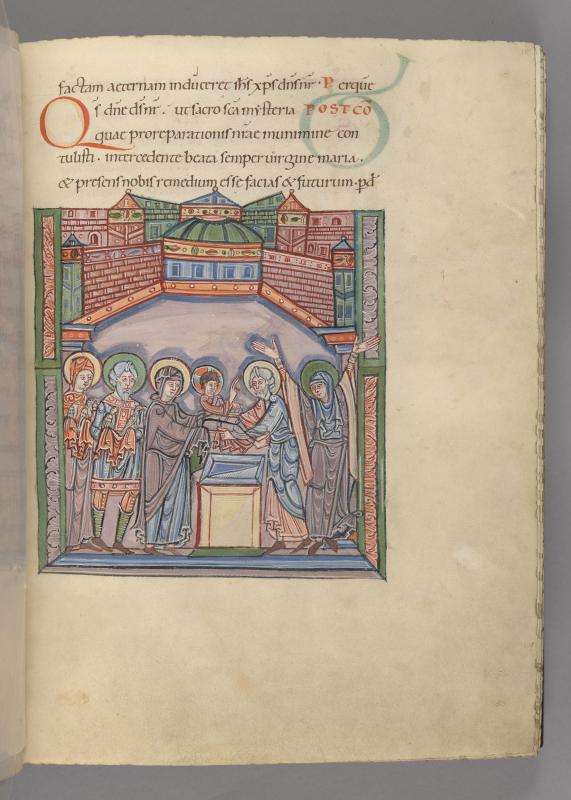 factam aeternam induceret ihs xps dns nr · Perque
Qs dne ds nr · ut sacrosca mysteria POST CO
quae pro reparationis nrae munimine con
tulisti · intercedente beata semper uirgine maria ·
& presens nobis remedium esse facias & futurum · pd